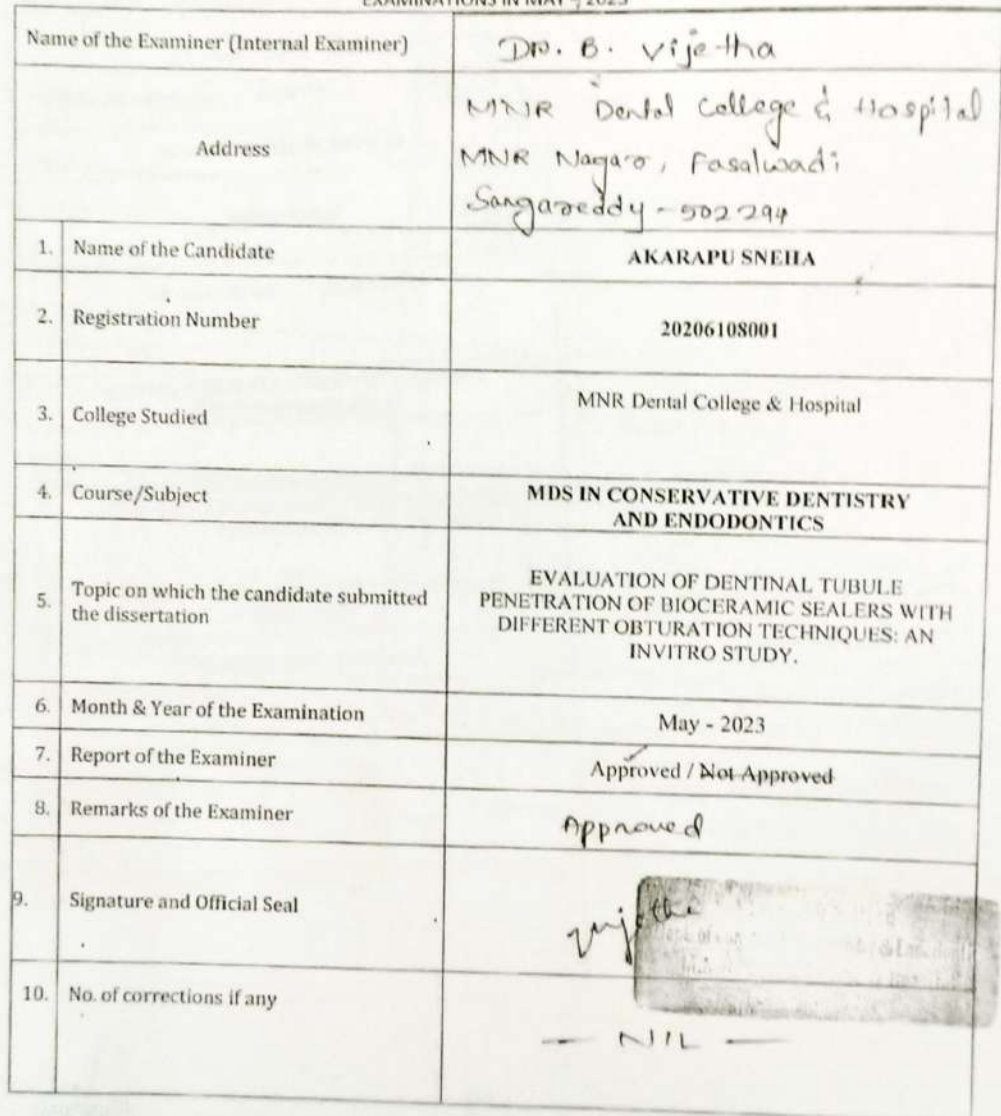 EXAMINATIONS IN MAY - 2023
Name of the Examiner (Internal Examiner)
Dr. B. Vijetha
Address
MNR Dental College & Hospital
MNR Nagar, Fasalwadi
Sangareddy - 502294
1. Name of the Candidate
AKARAPU SNEHA
2. Registration Number
20206108001
3. College Studied
MNR Dental College & Hospital
4. Course/Subject
MDS IN CONSERVATIVE DENTISTRY
AND ENDODONTICS
5. Topic on which the candidate submitted
the dissertation
EVALUATION OF DENTINAL TUBULE
PENETRATION OF BIOCERAMIC SEALERS WITH
DIFFERENT OBTURATION TECHNIQUES: AN
INVITRO STUDY.
6. Month & Year of the Examination
May - 2023
7. Report of the Examiner
Approved / Not Approved
8. Remarks of the Examiner
Approved
9. Signature and Official Seal
Vijetha
10. No. of corrections if any
— NIL —